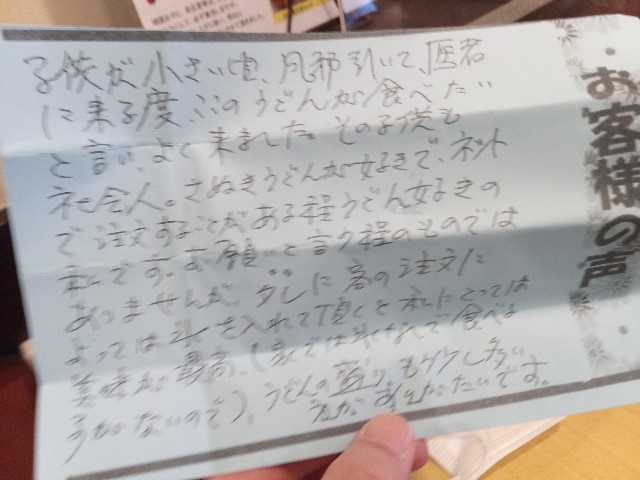 お客様の声
子供が小さい頃、風邪引いて、医者
に来る度、ここのうどんが食べたい
と言い、よく来ました。その子供も
社会人。さぬきうどんが好きで、ネット
で注文することがある程うどん好きの
私です。お願いと言う程のものでは
ありませんが、夕しに客の注文に
よっては氷を入れて頂くと私にとっては
美味が最高。(家では氷なしで食べよ
うがないので)、うどんの盛りも少し多い
方がありがたいです。